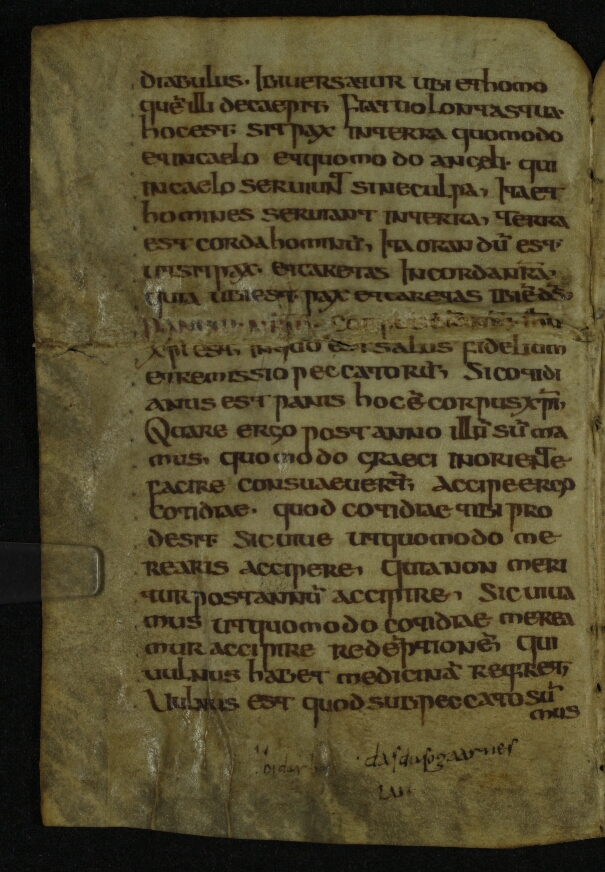 diabulus. Ibi uersatur ubi et homo
quē illi decaepit; Fiat uolontas tua
hoc est; sit pax in terra quomodo
et in caelo et quomodo angeli qui
in caelo seruiunt sine culpa, Ita et
homines seruiant in terra, terra
est corda hominū, Ita orandū est
ut sit pax. et caretas In corda nrā,
quia ubi est pax et caretas Ibi ē ds̄,
xp̄i est, in quo est salus fidelium
et remissio peccatorū, Si cotidi
anus est panis hoc ē corpus xp̄i,
Quare ergo post anno illū sūma
mus, quomodo graeci in oriente
facire consuaeuerūt, Accipe ergo
cotidiae. quod cotidiae tibi pro
desit Sic uiue ut quomodo me
rearis accipere, Quia non meri
tur post annū accipire, Sic uiua
mus ut quomodo cotidiae merea
mur accipire redēptionē, qui
uulnus habet medicinā reqret,
Uulnus est quod sub peccato sū
mus